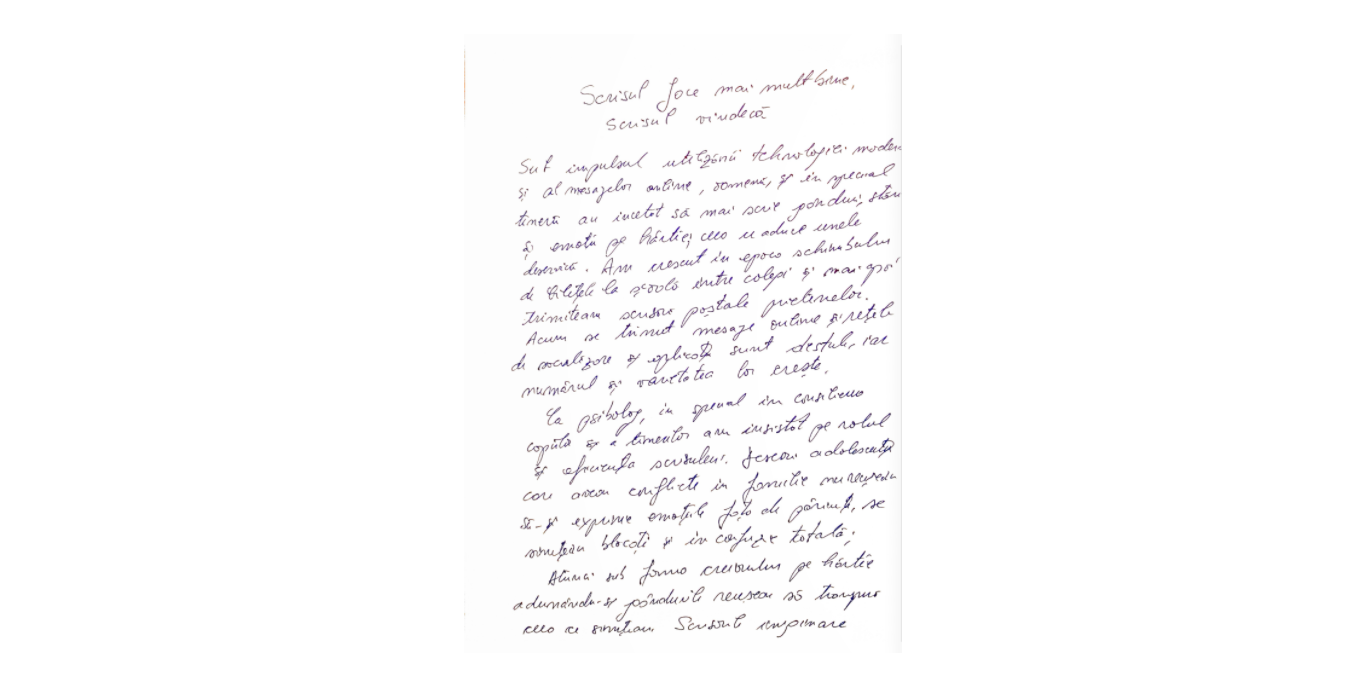 Scrisul face mai mult bine,
Scrisul vindecă
Sub impulsul utilizării tehnologiei modern
și al mesajelor online, oamenii, și în special
tinerii au încetat să mai scrie gânduri, stări
și emoții pe hârtie; ceea ce aduce unele
deservicii. Am crescut în epoca schimbului
de bilețele la școală între colegi și mai apoi
trimiteam scrisori poștale prietenelor.
Acum se trimit mesaje online și rețele
de socializare și aplicații sunt destule, iar
numărul și varietatea lor crește.
La psiholog, în special în consilierea
copiilor și a tinerilor am insistat pe rolul
și eficiența scrisului. Fiecare adolescenți
care aveau conflicte în familie nu reușeau
să-și exprime emoțiile față de părinți, se
simțeau blocați și în confuzie totală;
Atunci sub forma creionului pe hârtie
adunându-și gândurile reușeau să transpună
ceea ce simțeau. Scrisorile